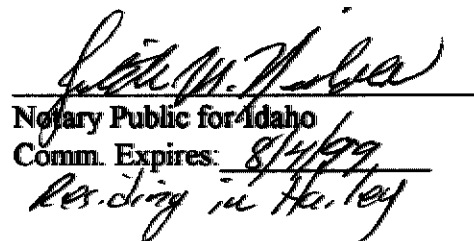 M.
Notary Public for Idaho
Comm. Expires: 8/4/99
Residing in Hailey